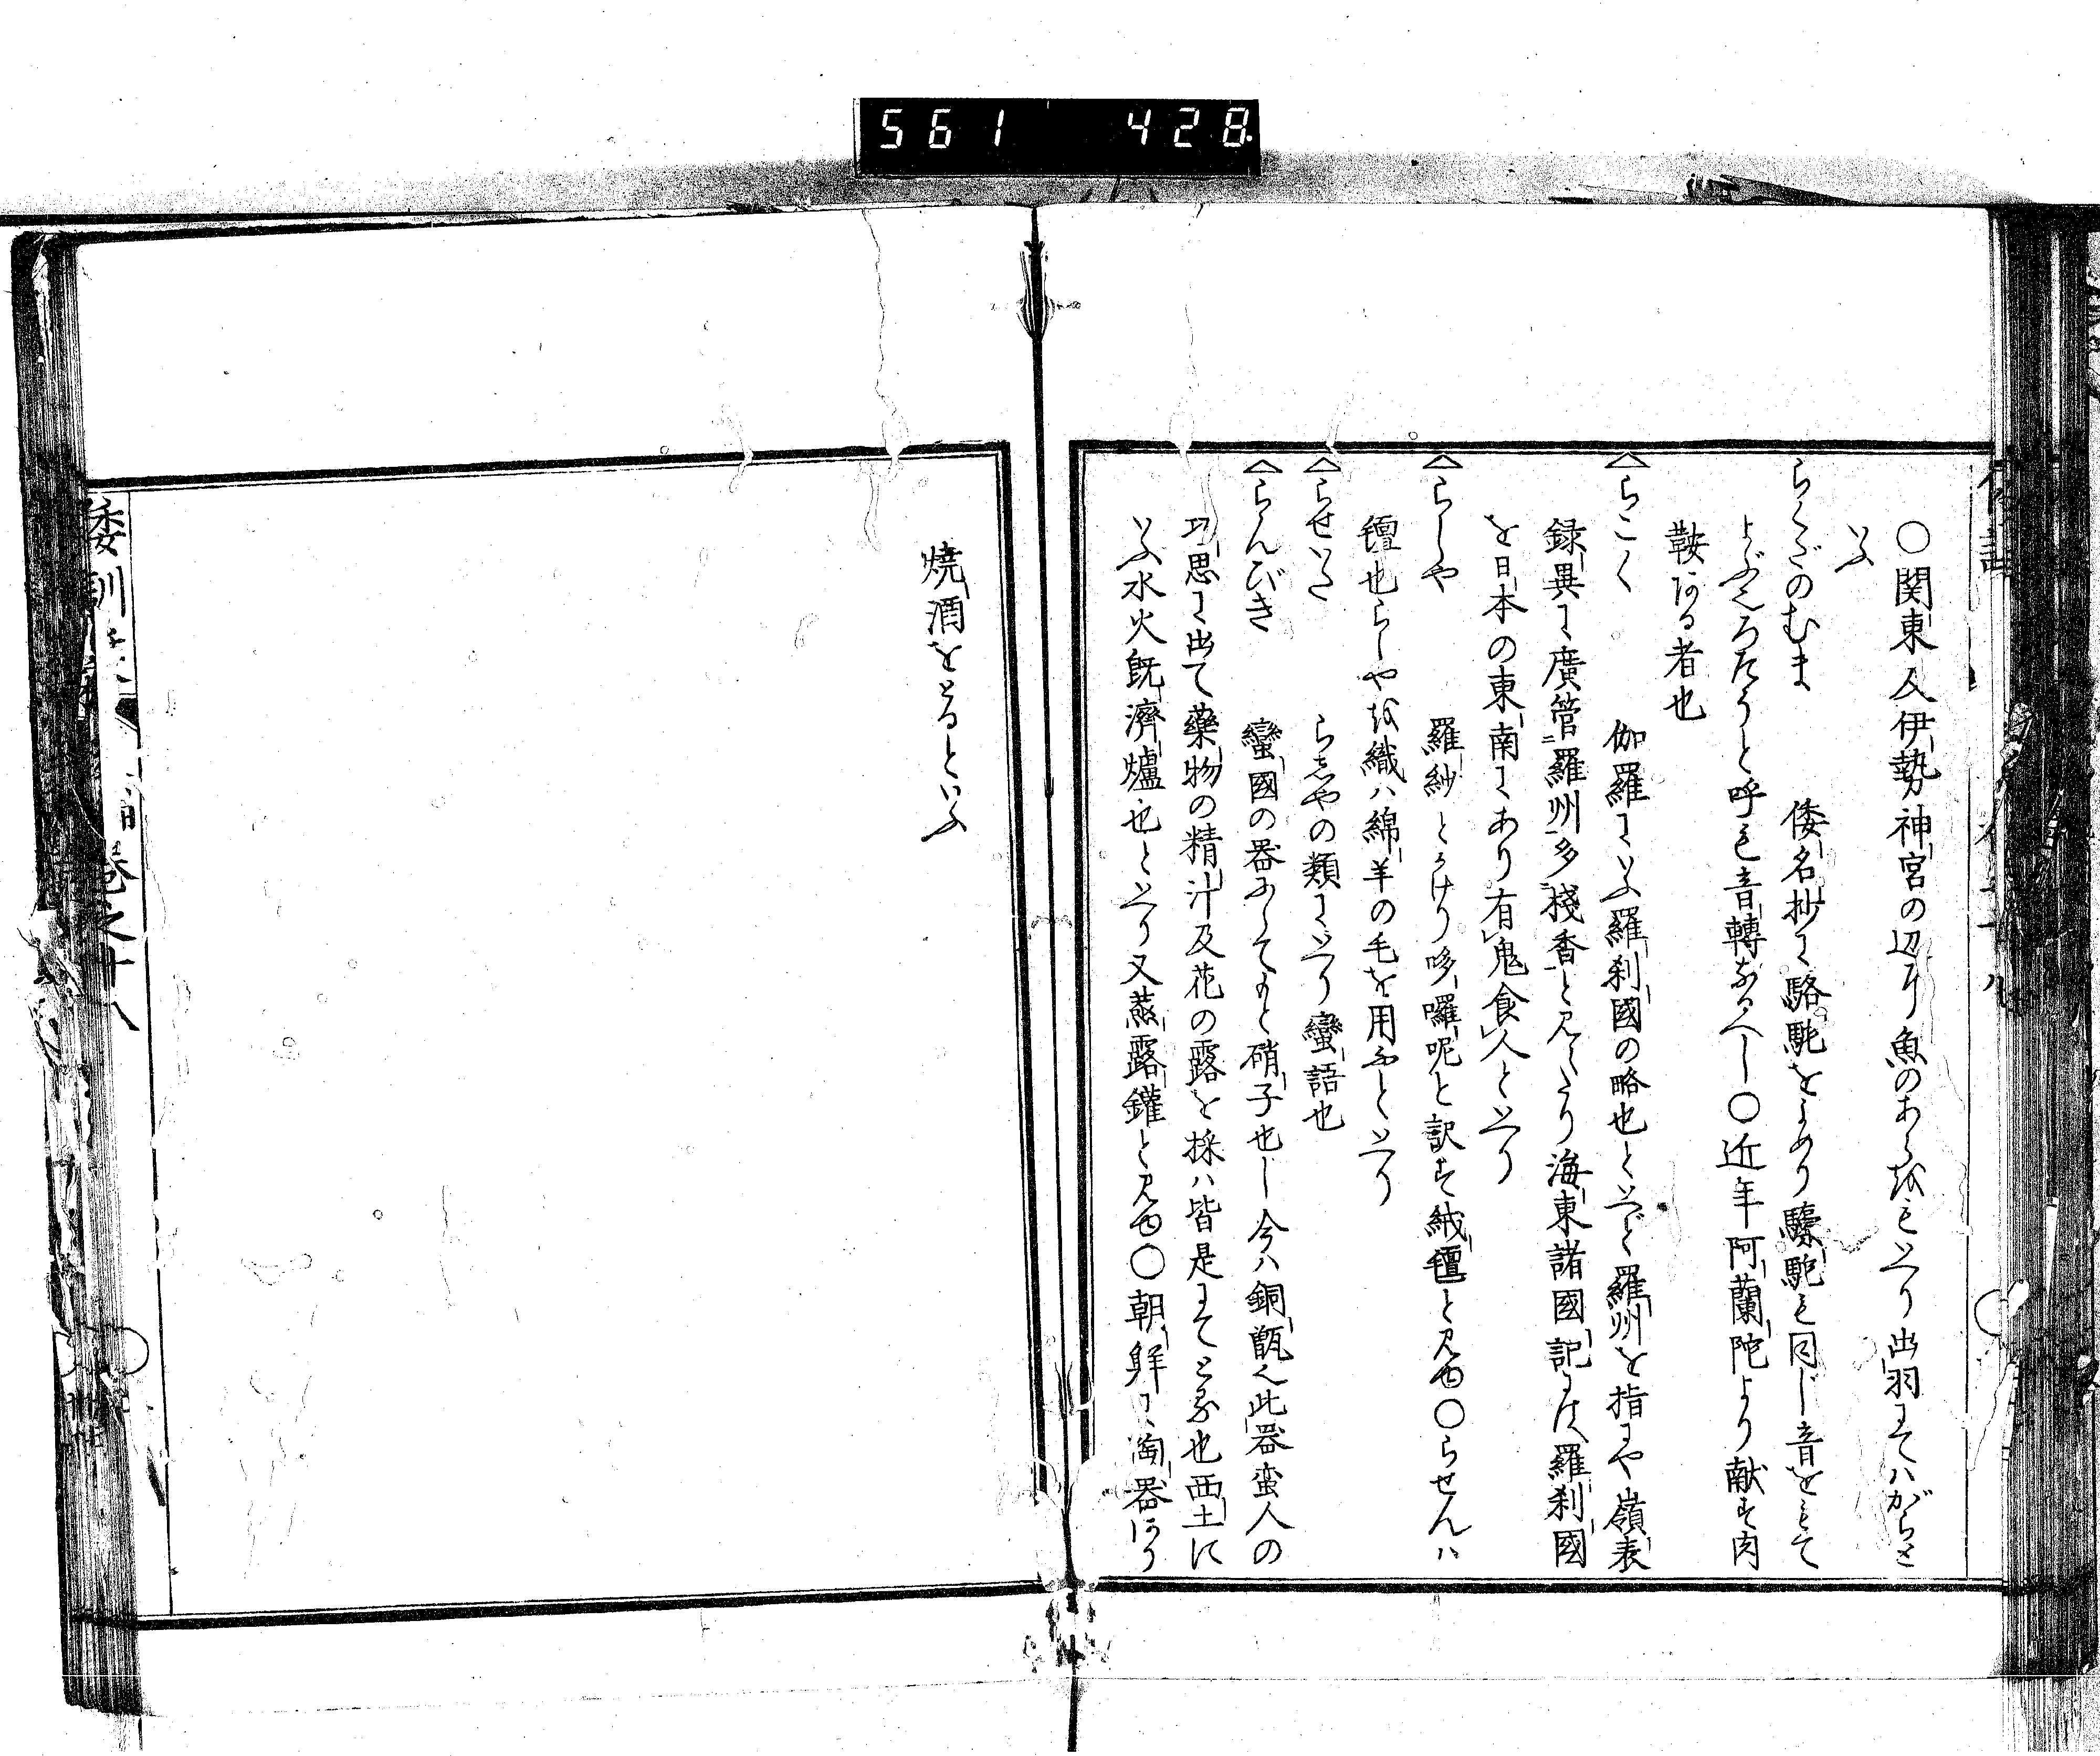 561 428
〇関東人伊勢神宮の辺り魚のあらをもいへり出羽にてハがらさと
いふ
らくだのむま 倭名抄に駱駝をよめり驝駝も同じ音をもて
よぶくろたうと呼も音轉なるへし〇近年阿蘭陀より献す肉
鞍ある者也
〈らこく 伽羅にいふ羅刹國の略也といへど羅州を指にや嶺表
録異に廣管羅州多棧香と見えたり海東諸國記には羅刹國
を日本の東南にあり有鬼食人といへり
〈らしや 羅紗とかけり哆囉呢と訳す絨氊と見ゆ〇らせんハ
氊也らしやを織ハ綿羊の毛を用ふといへり
〈らせいた らしやの類にいへり蠻語也
〈らんびき 蠻國の器にてもと硝子也し今ハ銅甑也此器蛮人の
巧思に出て藥物の精汁及花の露を採ハ皆是にてとる也西土に
いふ水火既濟爐也といへり又蒸露鑵と見ゆ〇朝鮮に陶器あり
焼酒をとるといふ
倭訓栞 巻之廿八